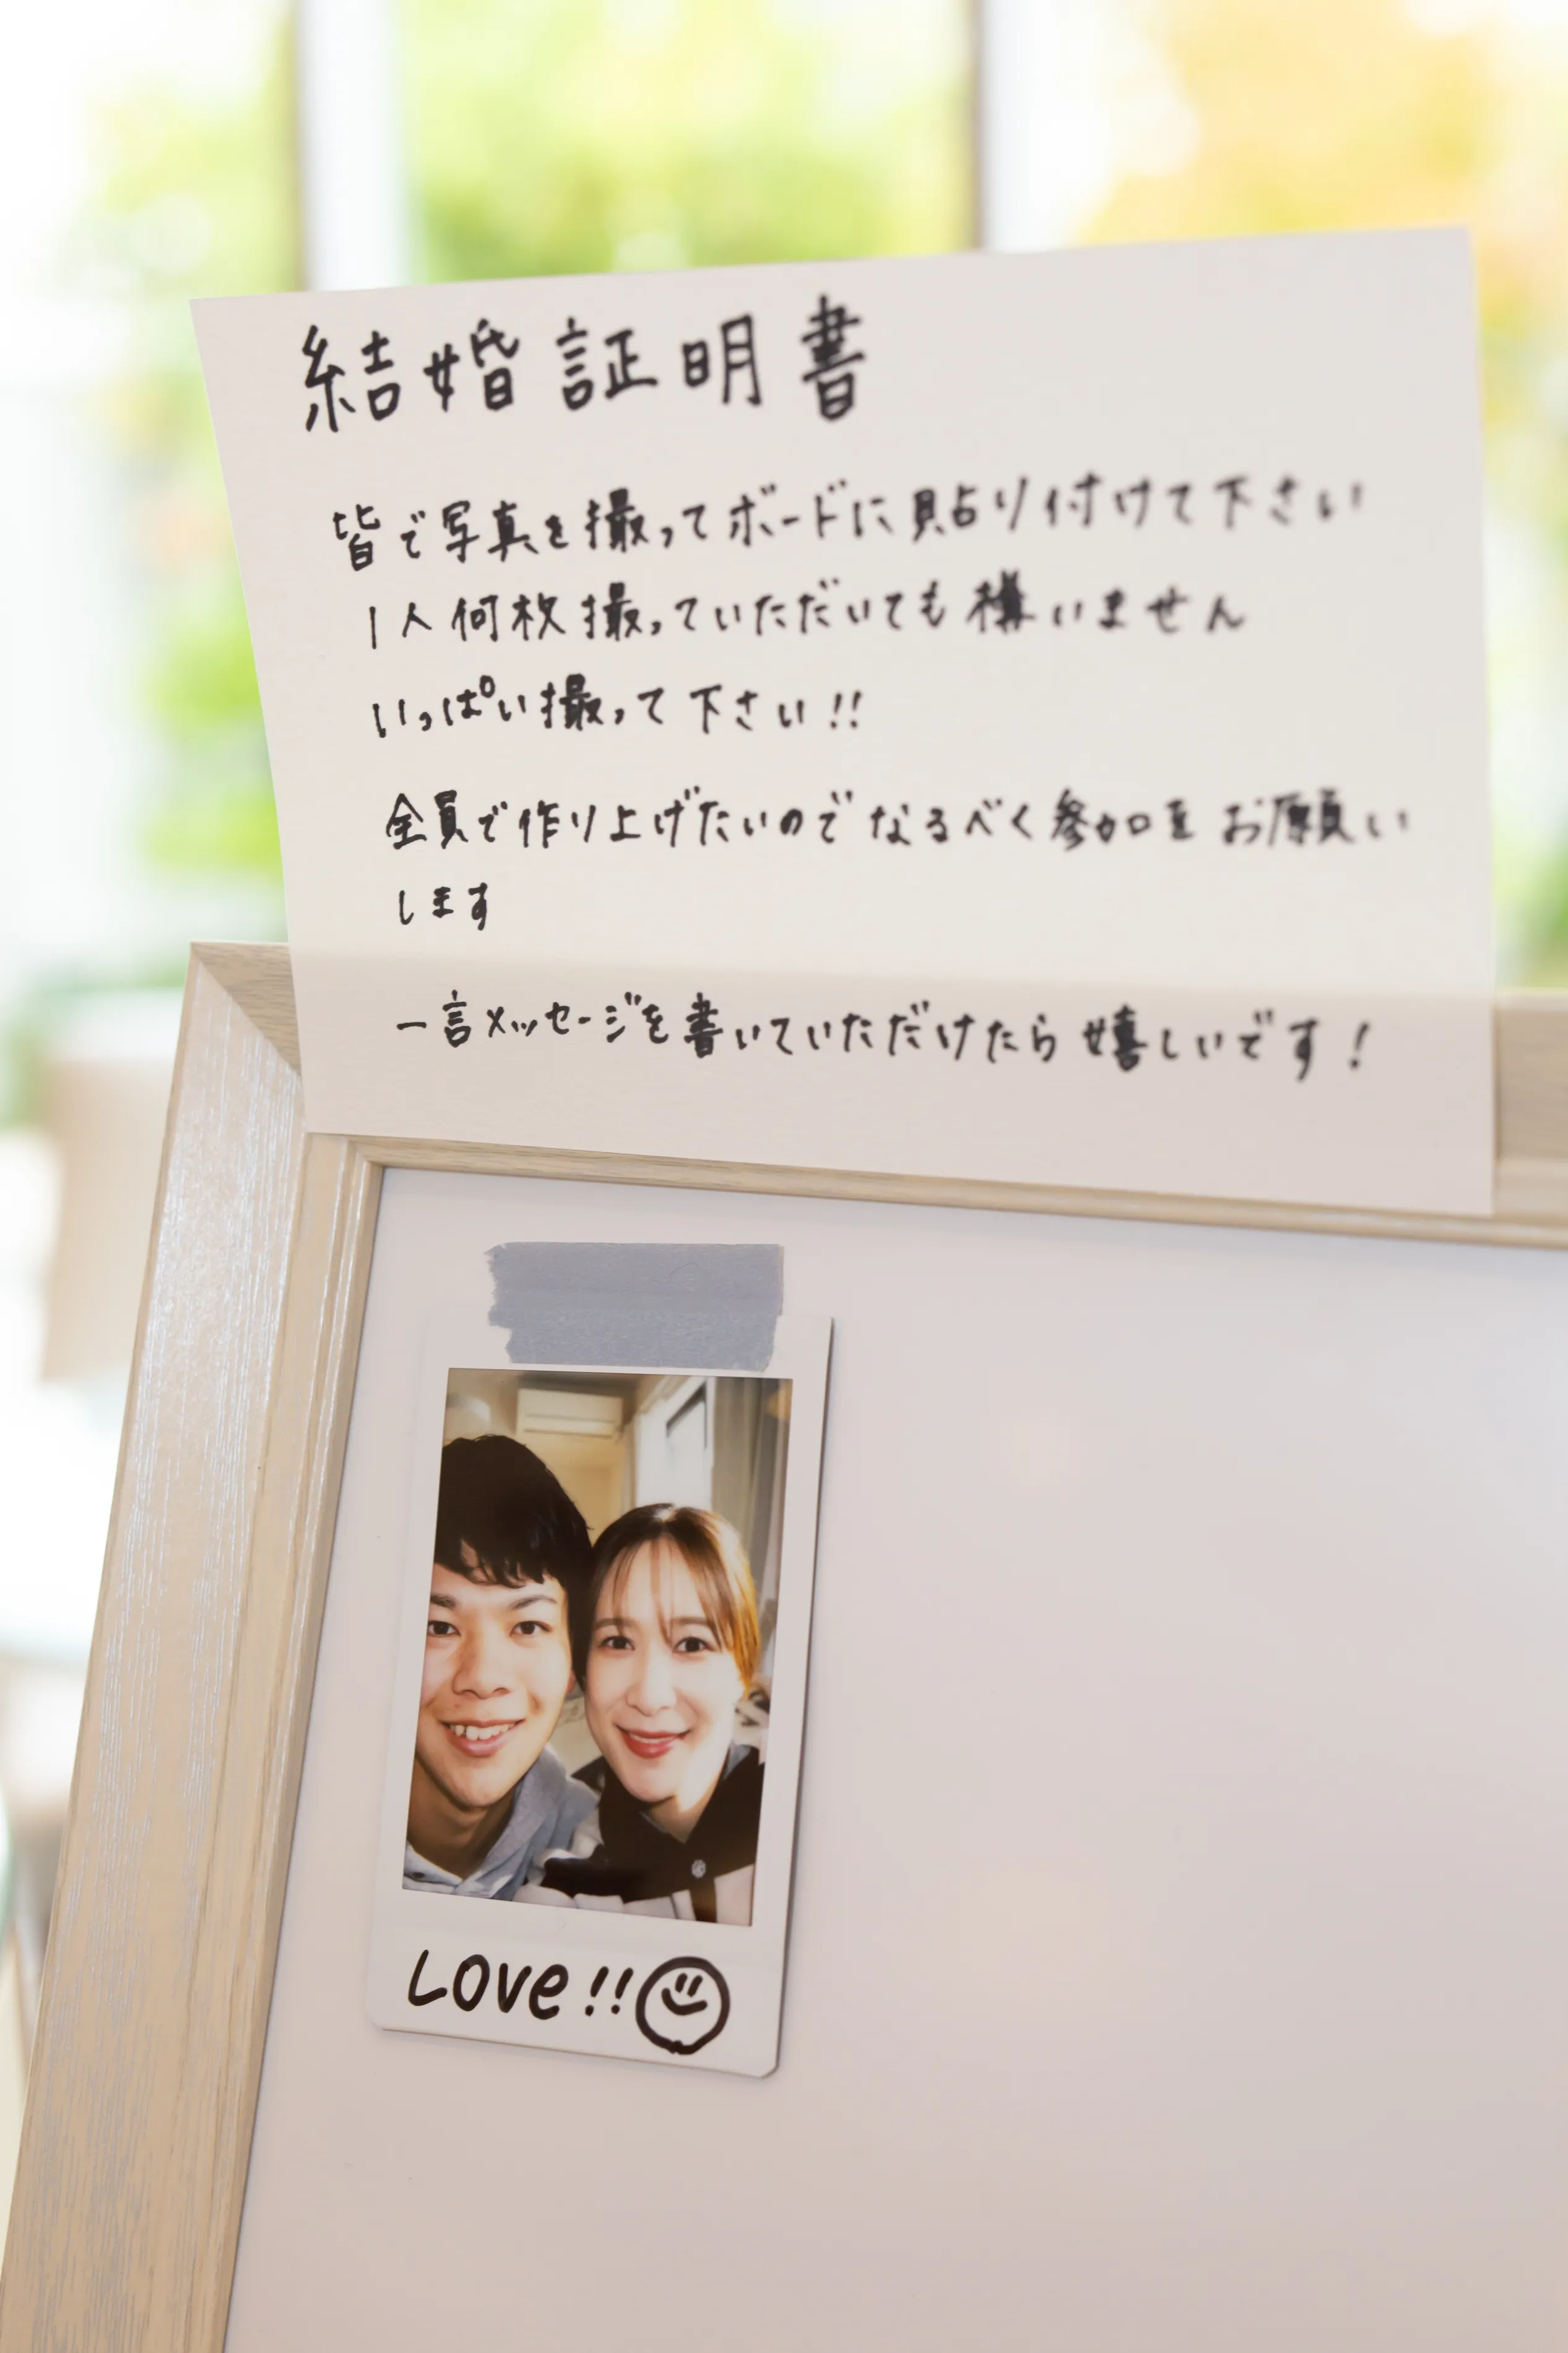 結婚証明書
皆で写真を撮ってボードに貼り付けて下さい
1人何枚撮っていただいても構いません
いっぱい撮って下さい!!
全員で作り上げたいのでなるべく参加をお願い
します
一言メッセージを書いていただけたら嬉しいです!
Love!!